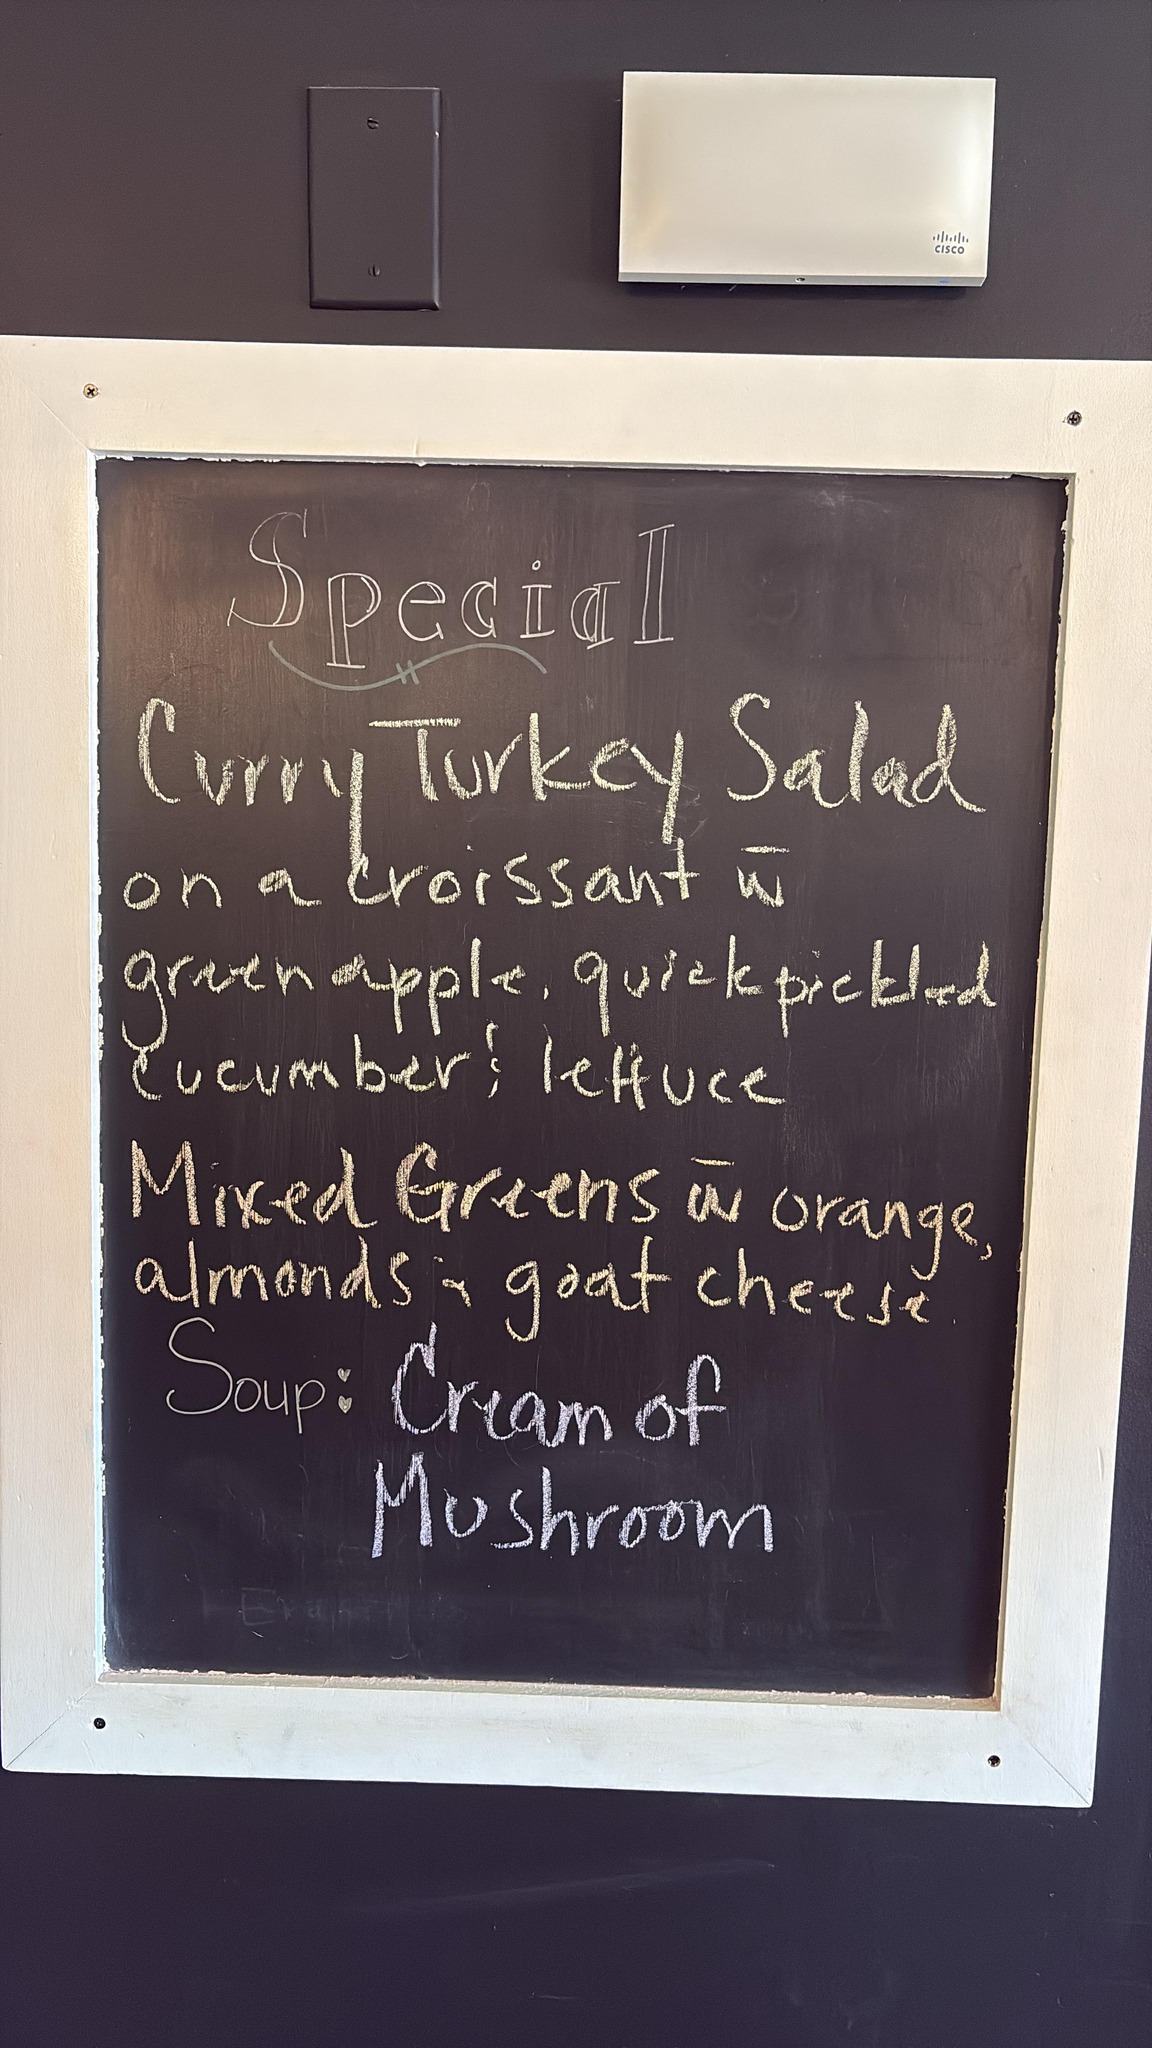 CISCO
Special
Curry Turkey Salad
on a croissant w̄
green apple, quick pickled
cucumber & lettuce
Mixed Greens w̄ orange,
almonds & goat cheese
Soup: Cream of
Mushroom